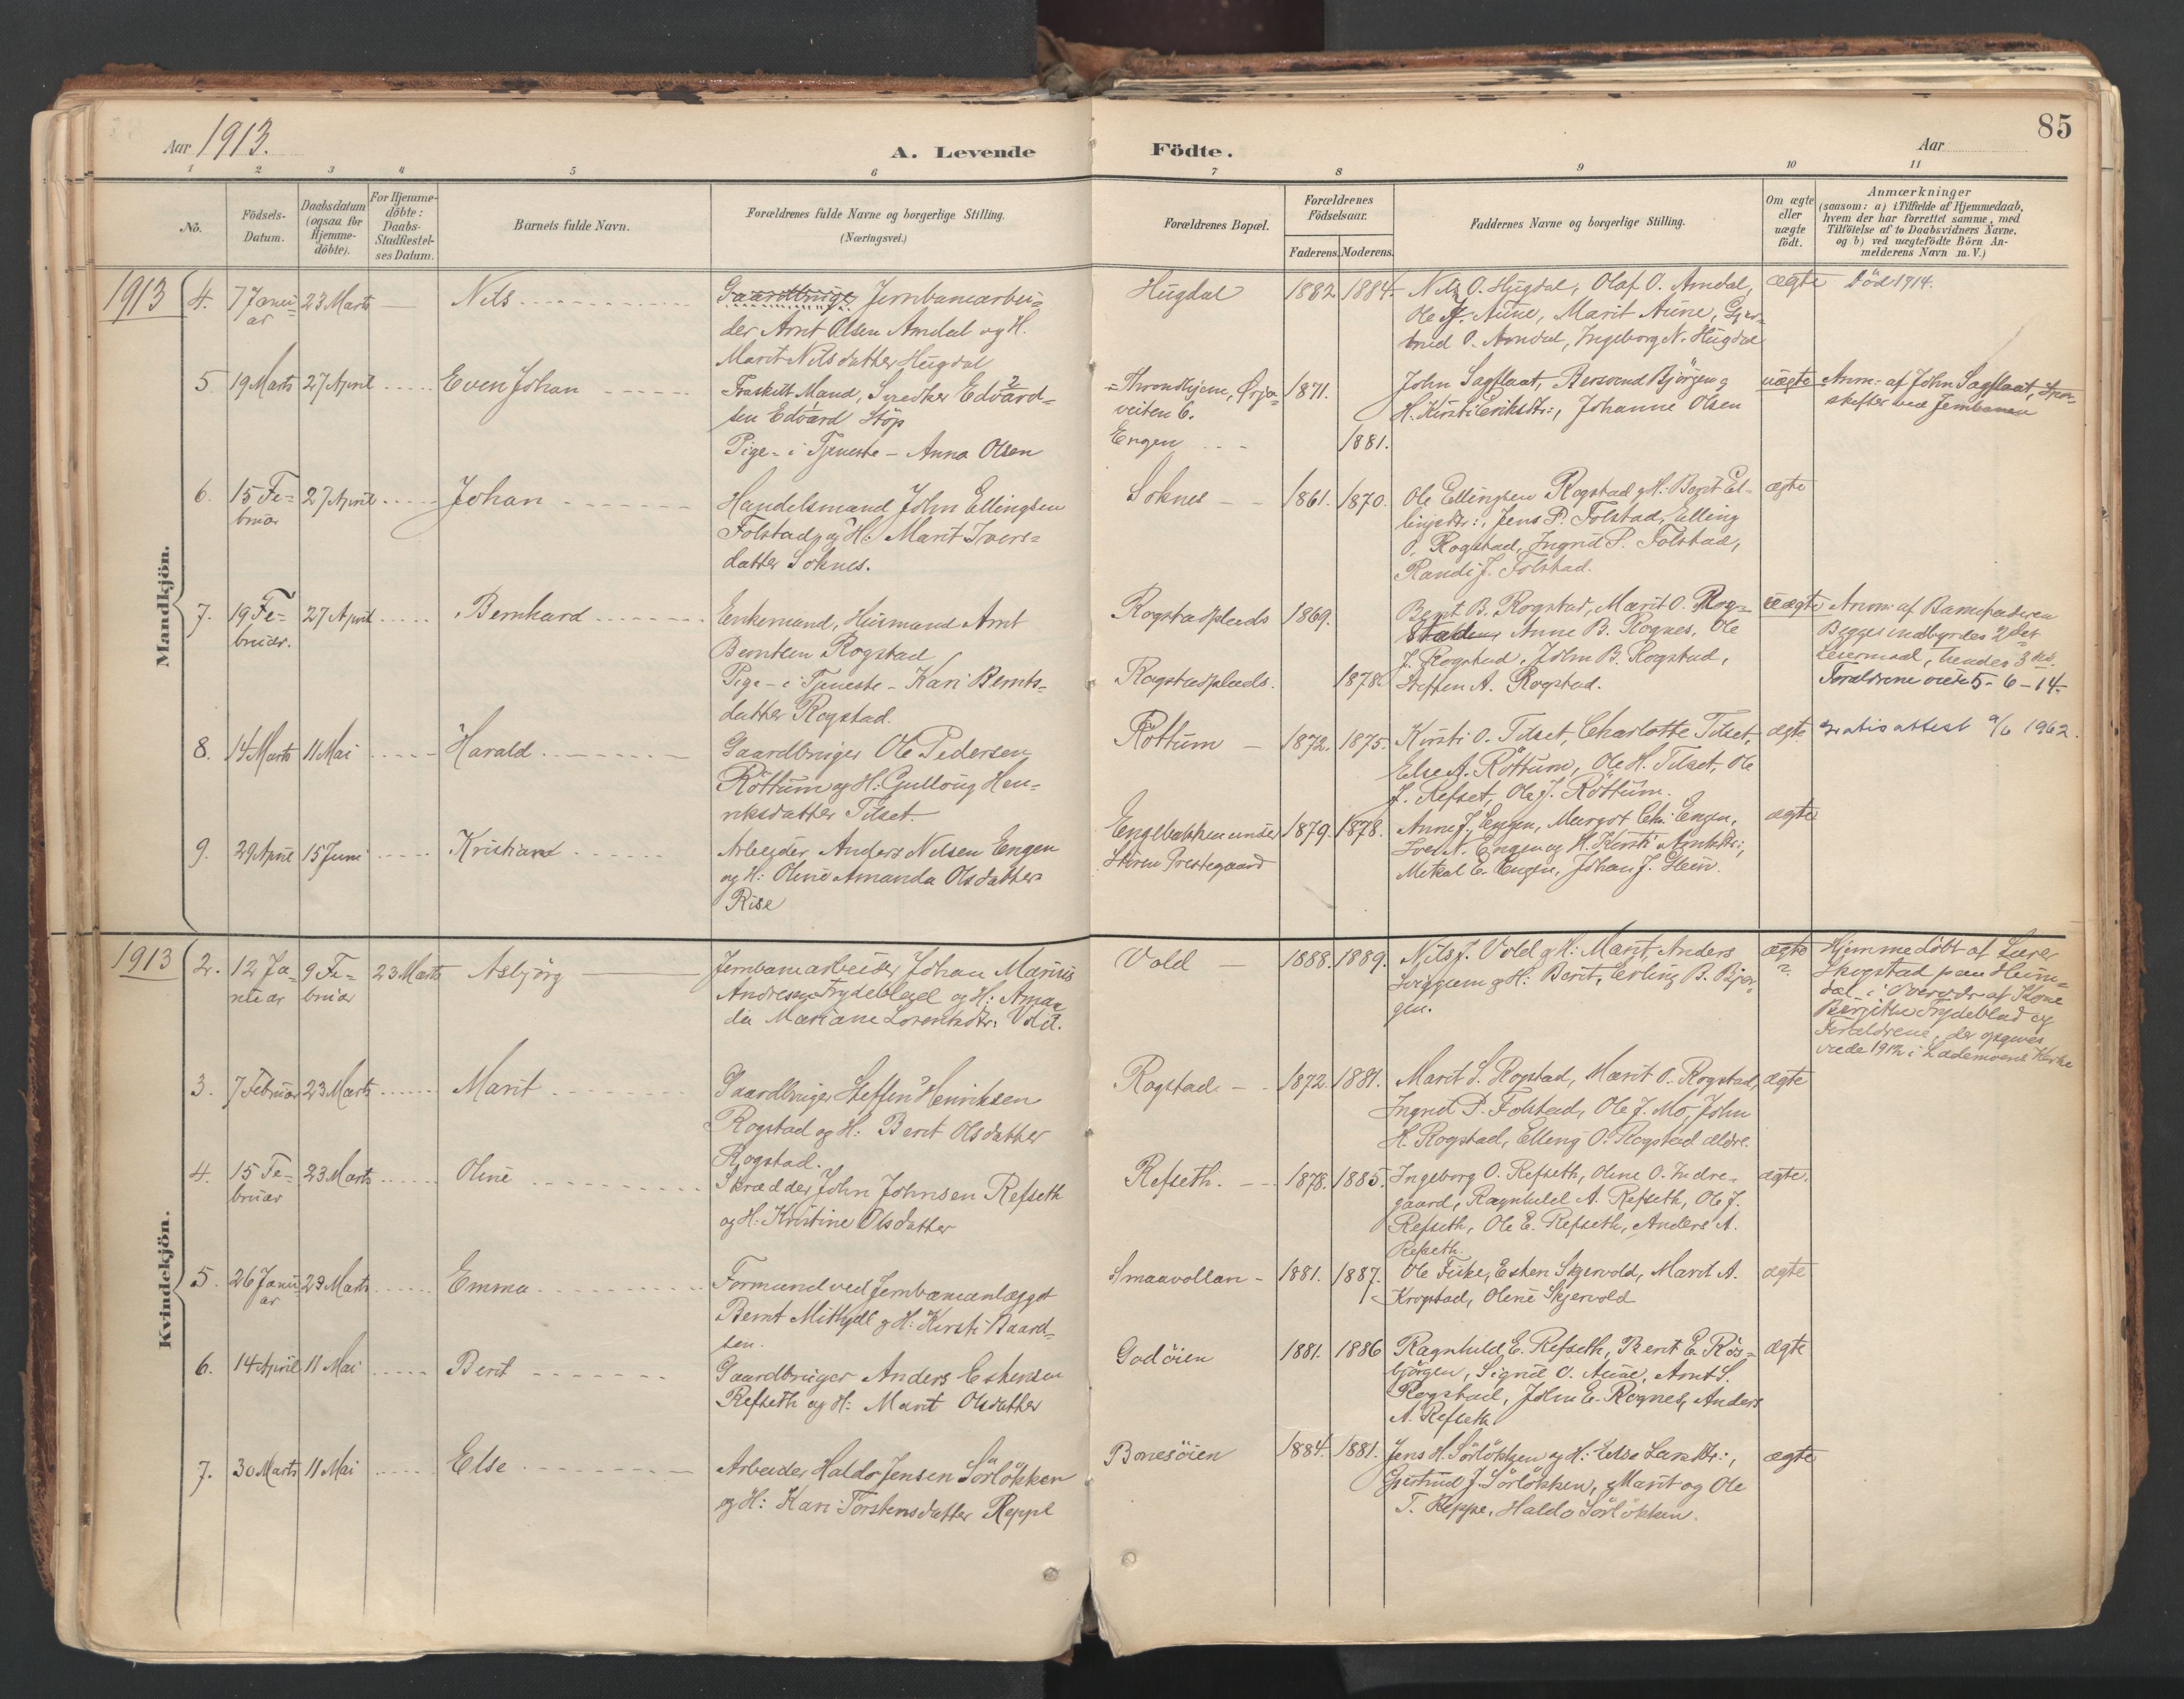 85
Aar 1913.
A. Levende Födte.
Aar
1 2 3 4 5 6 7 8 9 10 11
Nö.
Födsels-
Datum.
Daabsdatum
(ogsaa for
Hjemme-
döbte).
For Hjemme-
döbte:
Daabs-
Stadfæstel-
ses Datum.
Barnets fulde Navn.
Forældrenes fulde Navne og borgerlige Stilling.
(Næringsvei.)
Forældrenes Bopæl.
Forældrenes
Födselsaar.
Faderens. Moderens.
Faddernes Navne og borgerlige Stilling.
Om ægte
eller
uægte
födt.
Anmærkninger
(saasom: a) i Tilfælde af Hjemmedaab,
hvem der har forrettet samme, med
Tilföielse af to Daabsvidners Navne,
og b) ved uægtefödte Börn An-
melderens Navn m. V.)
Mandkjön.
1913
4. 7 Janu-
ar
23 Marts
Nils
Gaardbruger Jernbanearbei-
der Arnt Olsen Amdal og H.
Marit Nilsdatter Hugdal
Hugdal
1882 1884.
Nils O. Hugdal, Olaf O. Amdal,
Ole J. Aune, Marit Aune, Gjer-
trud O. Amdal, Ingeborg N. Hugdal
ægte
Död 1914.
5. 19 Marts 27 April
Even Johan
Fraskilt Mand, Snedker Edvard-
sen Edvard Stöp
Pige - i Tjeneste - Anna Olsen
Throndhjem, Ørja-
veiten 6.
Engen
1871.
1881.
John Sagflaat, Bersvend Bjørgen og
H. Kirsti Eriksdtr:, Johanne Olsen
uægte
Anm: af John Sagflaat, Spor-
skifter ved Jernbanen
6. 15 Fe-
bruar
27 April
Johan
Handelsmand John Ellingsen
Folstad og H. Marit Ivers-
datter Soknes.
Soknes
1861. 1870.
Ole Ellingsen Rogstad og H: Berit El-
lingsdtr:, Jens P. Folstad, Elling
O. Rogstad, Ingrid P. Folstad,
Randi J. Folstad.
ægte
7. 19 Fe-
bruar.
27 April
Bernhard
Enkemand, Husmand Arnt
Berntsen Rogstad
Pige - i Tjeneste - Kari Bernts-
datter Rogstad.
Rogstadplads
Rogstadplads.
1869.
1878.
Bernt B. Rogstad, Marit O. Rog-
stad, Anne B. Rognes, Ole
J. Rogstad, John B. Rogstad,
Steffen A. Rogstad.
uægte
Anm: af Barnefaderen
Begges indbyrdes 2det
Leiermaal, hendes 3die.
Forældrene viede 5-6-14.
8. 14 Marts 11 Mai
Harald
Gaardbruger Ole Pedersen
Röttum og H: Gullaug Hen-
riksdatter Tilset.
Röttum
1872. 1875.
Kirsti O. Tilset, Charlotte Tilset,
Else A. Röttum, Ole H. Tilset, Ole
J. Refset, Ole J. Röttum.
ægte
Gratis attest 9/6 1962.
9. 29 April 15 Juni
Kristian
Arbejder Anders Nilsen Engen
og H: Oline Amanda Olsdatter
Rise
Engebakken under
Stören Prestegaard
1879. 1878.
Anne J. Engen, Margot Chr. Engen,
Iver N. Engen og H. Kirsti Arntsdtr:,
Mikal E. Engen, Johan J. Stein.
ægte
Kvindekjön.
1913
2. 12 Ja-
nuar
9 Fe-
bruar
23 Marts
Asbjörg
Jernbanearbeider Johan Marius
Andresen Frydeblad og H: Aman
da Mariane Lorentsdtr. Vold.
Vold
1888. 1889.
Nils J. Vold og H: Marit, Anders
Sviggum og H: Berit, Erling B. Bjør-
gen.
ægte
?
Hjemmedöbt af Lærer
Skogstad paa Heim-
dal i Overvær af Kone
Bergithe Frydeblad og
Forældrene, der opgives
viede 1912 i Lademoens Kirke
3. 7 Februar 23 Marts
Marit
Gaardbruger Steffen Henriksen
Rogstad og H: Berit Olsdatter
Rogstad.
Rogstad
1872. 1881.
Marit S. Rogstad, Marit O. Rogstad,
Ingrid P. Folstad, Ole J. Mo, John
H. Rogstad, Elling O. Rogstad ældre.
ægte
4. 15 Fe-
bruar
23 Marts
Oline
Skrædder John Johnsen Refseth
og H: Kristine Olsdatter
Refseth.
1878. 1885.
Ingeborg O. Refseth, Oline O. Indre-
gaard, Ragnhild A. Refseth, Ole J.
Refseth, Ole E. Refseth, Anders A.
Refseth.
ægte.
5. 26 Janu-
ar
23 Marts
Emma
Formand ved Jernbaneanlægget
Bernt Mithyell og H: Kirsti Baard-
sen.
Smaavollan
1881. 1887.
Ole Fuke, Esten Skjervold, Marit A.
Krogstad, Oline Skjervold
ægte
6. 14 April 11 Mai
Berit
Gaardbruger Anders Estensen
Refseth og H: Marit Olsdatter
Godöien
1881. 1886
Ragnhild E. Refseth, Berit E. Rös-
björgen, Sigrid O. Aune, Arnt S.
Rogstad, John E. Rognes, Anders
A. Refseth
ægte
7. 30 Marts 11 Mai
Else
Arbeider Haldo Jensen Sörlökken
og H: Kari Torstensdatter Reppe
Bonesöien
1884. 1881.
Jens H. Sörlökken og H: Else Larsdtr:,
Gjertrud J. Sörlökken, Marit og Ole
T. Reppe, Haldo Sörlökken.
ægte